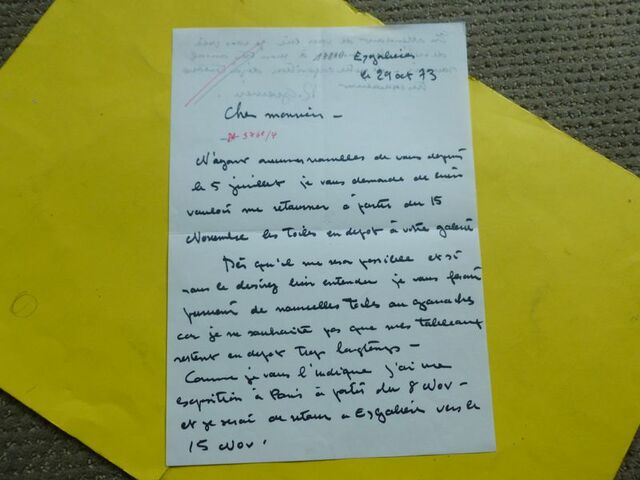 Eygalières
le 29 oct 73
Cher monsieur –
N'ayant aucunes nouvelles de vous depuis
le 5 juillet je vous demande de bien
vouloir me retourner à partir du 15
Novembre les toiles en depot à votre galerie
Dès qu'il me sera possible et si
vous le desirez bien entendu je vous ferai
parvenir de nouvelles toiles ou gouaches
car je ne souhaite pas que mes tableaux
restent en depot trop longtemps –
Comme je vous l'indique j'ai une
exposition à Paris à partir du 8 Nov –
et je serai de retour a Eygalières vers le
15 Nov.